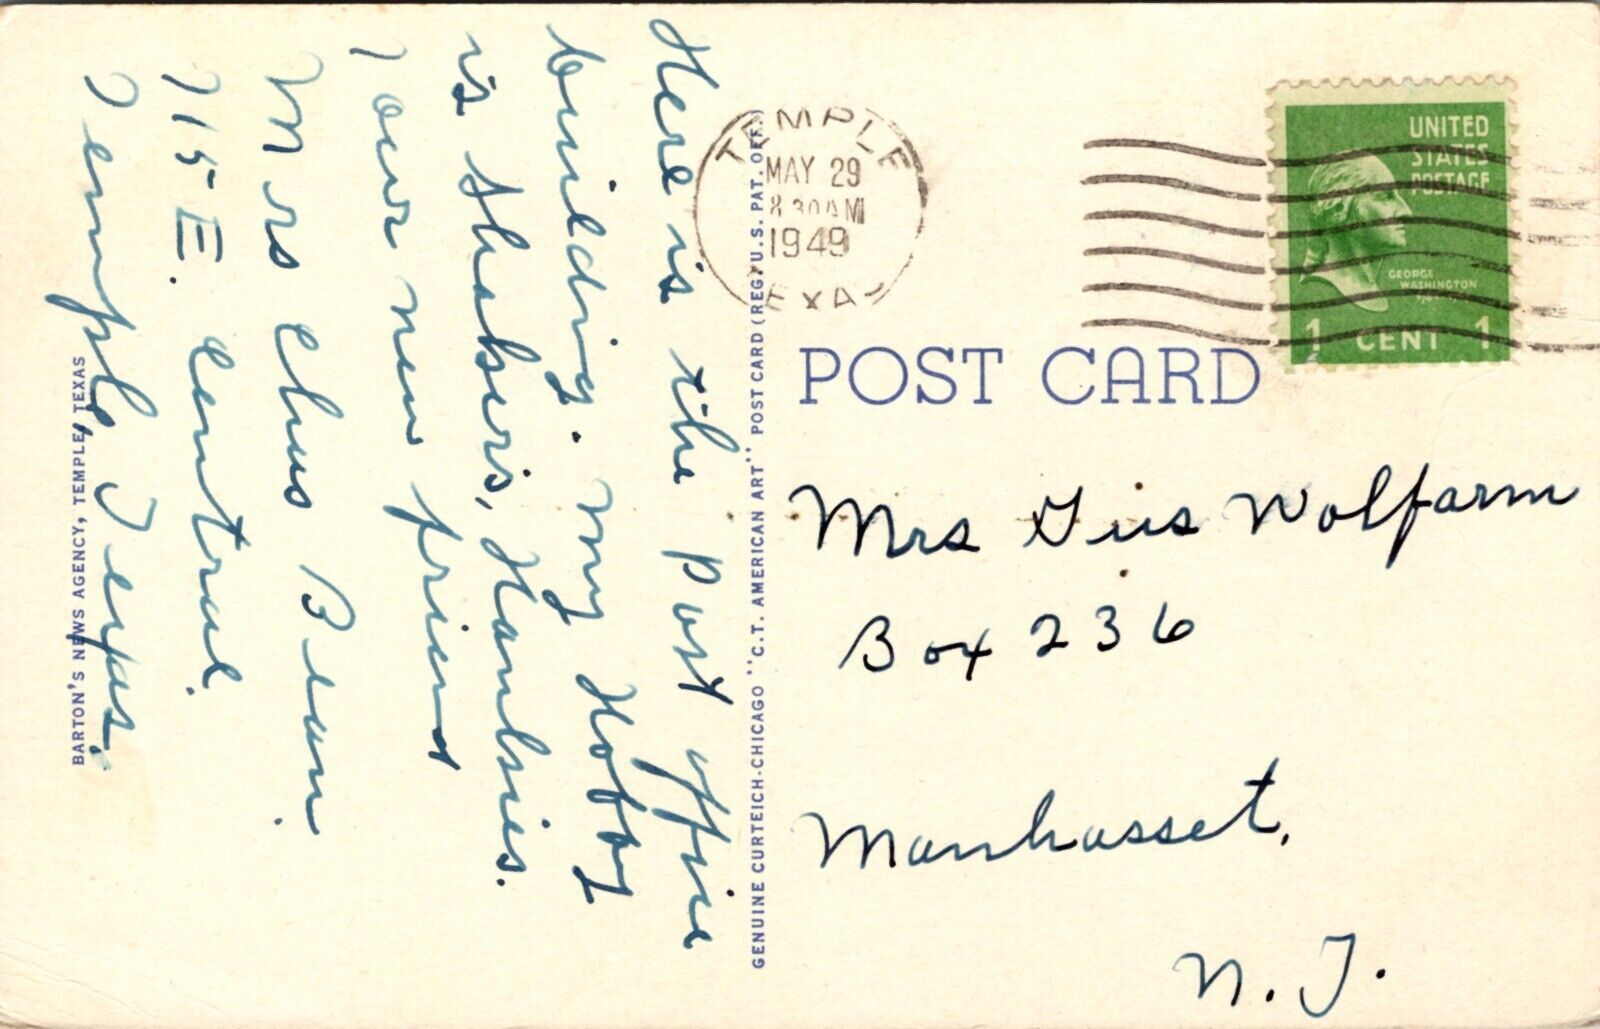 Here is the post office
building. my Hobby
is Shakers, Hankies.
Your new friend
Mrs Chas Bean
715 E. Central.
Temple, Texas.
BARTON'S NEWS AGENCY, TEMPLE, TEXAS
GENUINE CURTEICH-CHICAGO "C.T. AMERICAN ART" POST CARD (REG. U.S. PAT. OFF.)
TEMPLE
MAY 29
8 30 AM
1949
TEXAS
UNITED
STATES
POSTAGE
GEORGE
WASHINGTON
1 CENT 1
POST CARD
Mrs Gus Wolfarm
Box 236
Manhasset,
N. J.